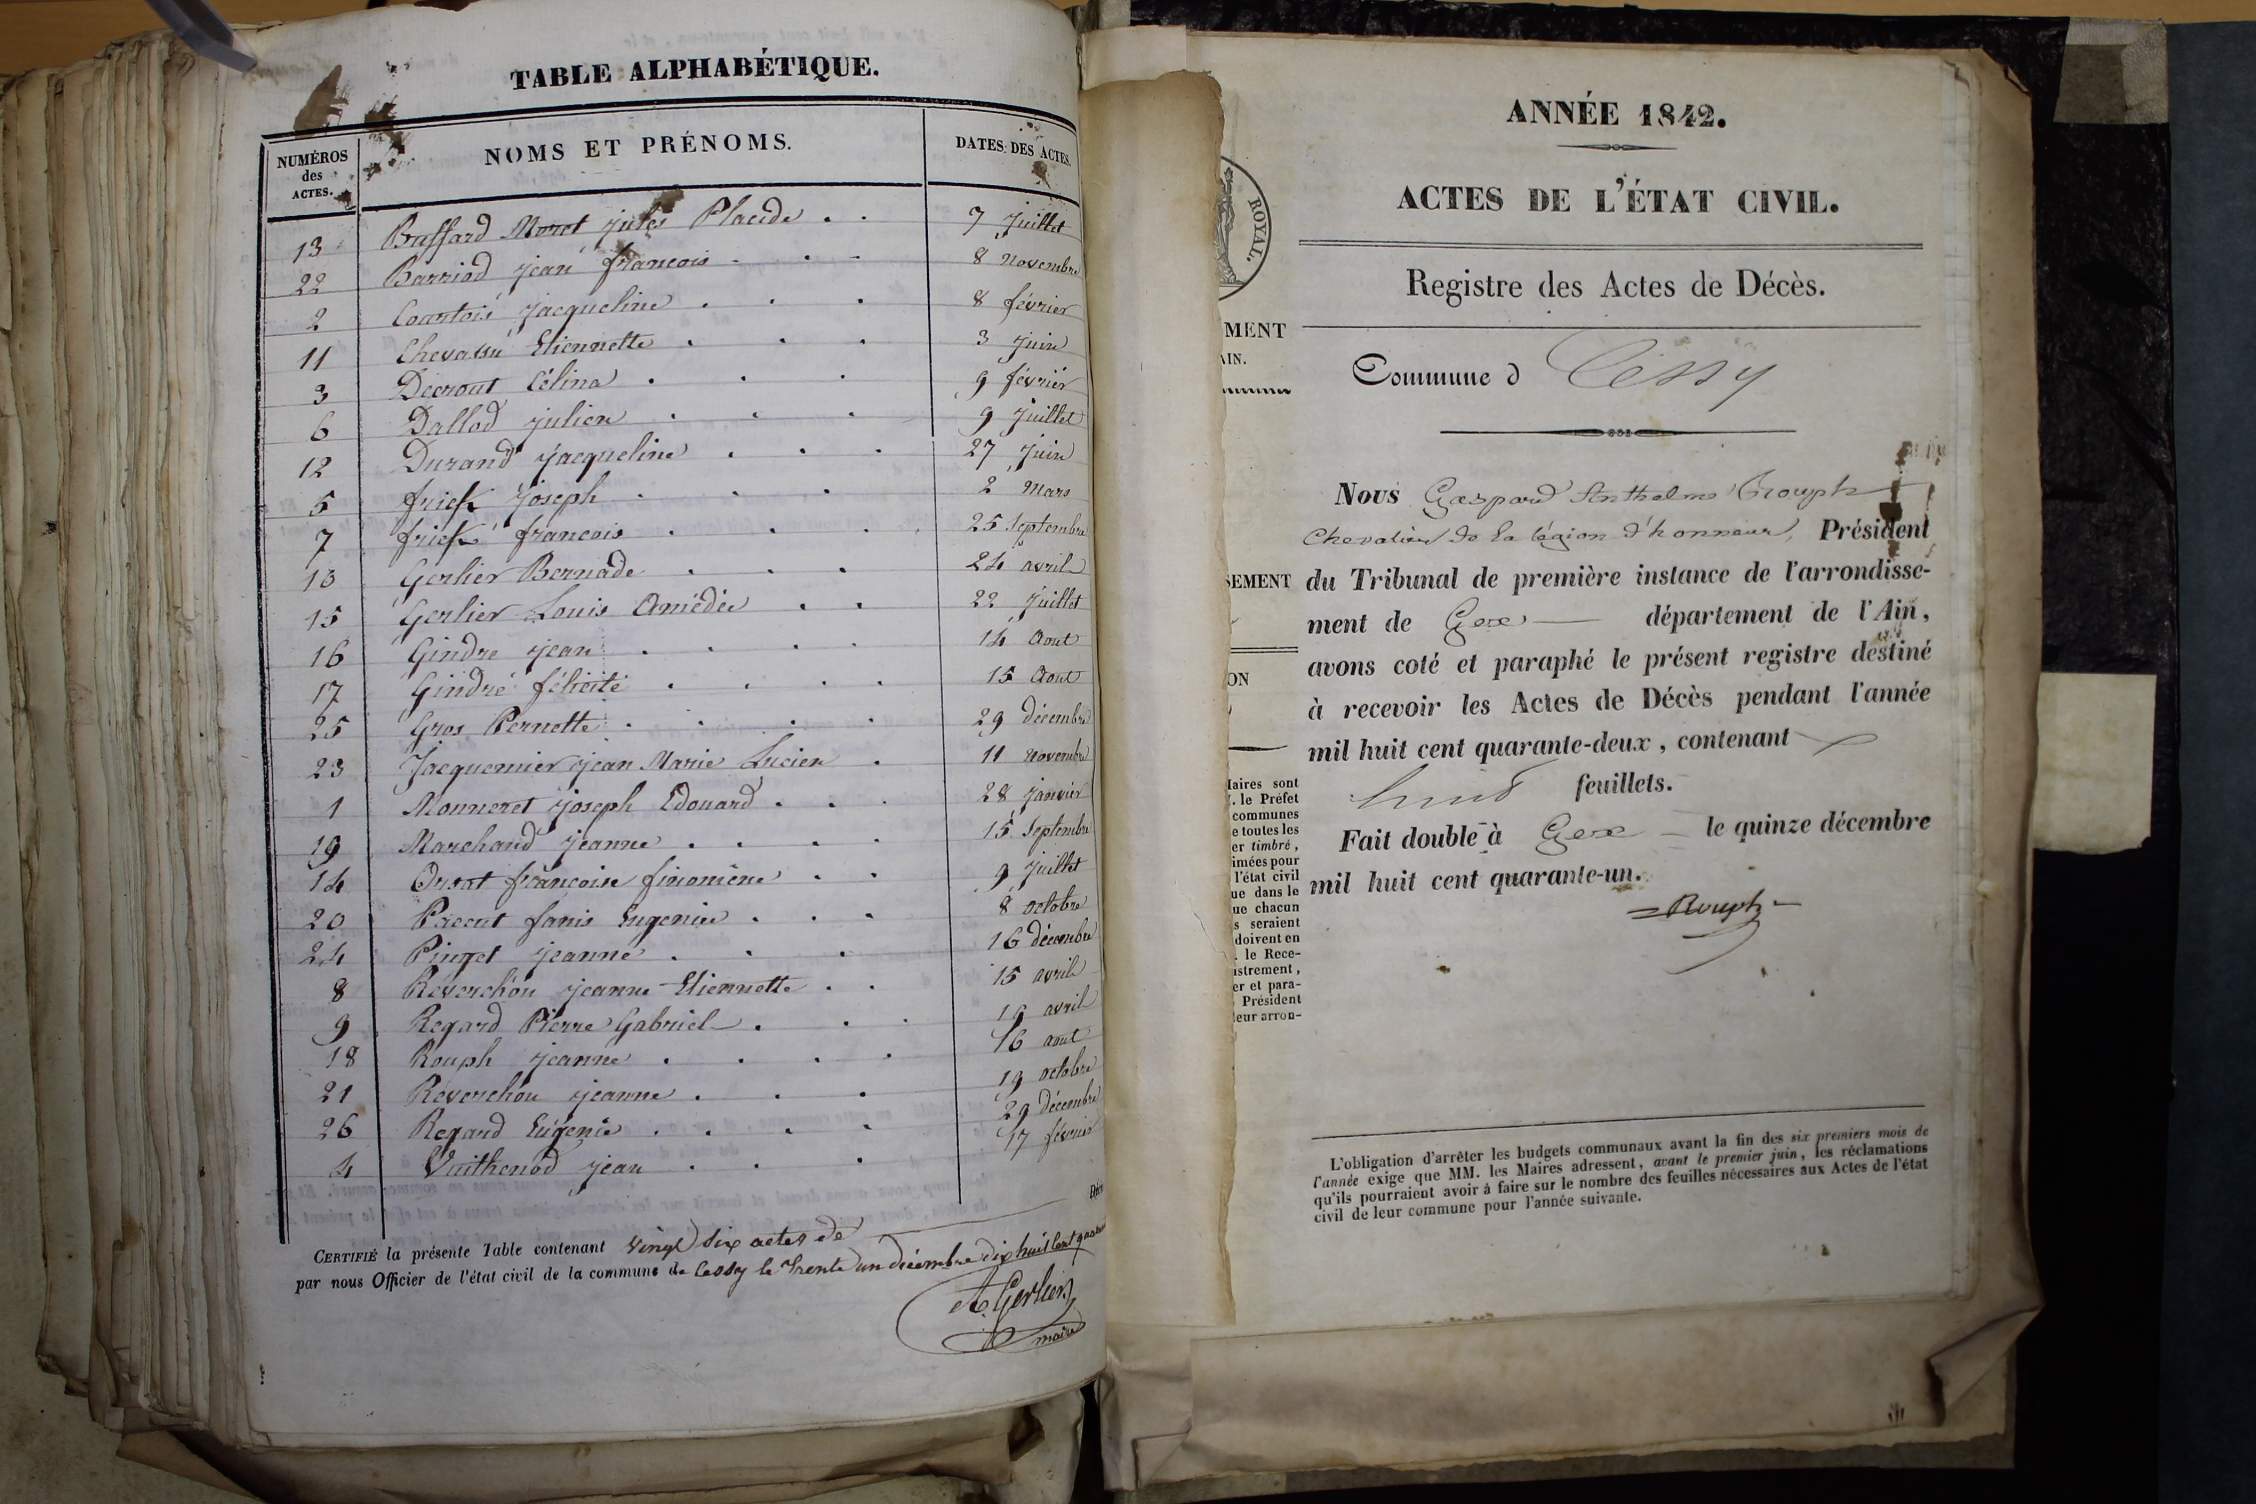 TABLE ALPHABÉTIQUE.
NUMÉROS des ACTES. NOMS ET PRÉNOMS. DATES DES ACTES.
13 Buffard Moret jules Placide 7 juillet
22 Barriod jean françois 8 novembre
2 Courtois jacqueline 8 février
11 Chevassu Etiennette 3 juin
3 Decrout Célina 9 février
6 Dallod julien 9 juillet
12 Durand jacqueline 27 juin
5 frick joseph 2 Mars
7 frick françois 25 Septembre
10 Gerlier Bernade 24 avril
15 Gerlier Louis Amédée 22 juillet
16 Gindre jean 14 Aout
17 Gindre félicité 15 Aout
25 Gros Pernette 29 décembre
23 Jacquemier jean Marie Lucien 11 novembre
1 Monneret joseph Edouard 28 janvier
19 Marchand jeanne 15 Septembre
14 Orsat françoise finomène 9 juillet
20 Paccut fanis Eugenie 8 octobre
24 Pinget jeanne 16 décembre
8 Réverchon jeanne Etiennette 15 avril
9 Regard Pierre Gabriel 19 avril
18 Rouph jeanne 16 aout
21 Réverchon jeanne 19 octobre
26 Regard Eugenie 29 décembre
4 Vuithenod jean 17 février
CERTIFIÉ la présente Table contenant vingt six actes de
par nous Officier de l'état civil de la commune de Cessy le trente un décembre dix huit cent
A. Gerlier
maire
ROYAL.
MENT
AIN.
SEMENT
ON
Maires sont
. le Préfet
communes
e toutes les
er timbré,
imées pour
l'état civil
ue dans le
ue chacun
s seraient
doivent en
. le Rece-
istrement,
er et para-
Président
leur arron-
ANNÉE 1842.
ACTES DE L'ÉTAT CIVIL.
Registre des Actes de Décès.
Commune d Cessy
Nous Gaspard Anthelme Rouph
Chevalier de la légion d'honneur, Président
du Tribunal de première instance de l'arrondisse-
ment de Gex département de l'Ain,
avons coté et paraphé le présent registre destiné
à recevoir les Actes de Décès pendant l'année
mil huit cent quarante-deux, contenant
huit feuillets.
Fait double à Gex le quinze décembre
mil huit cent quarante-un.
Rouph
L'obligation d'arrêter les budgets communaux avant la fin des six premiers mois de
l'année exige que MM. les Maires adressent, avant le premier juin, les réclamations
qu'ils pourraient avoir à faire sur le nombre des feuilles nécessaires aux Actes de l'état
civil de leur commune pour l'année suivante.